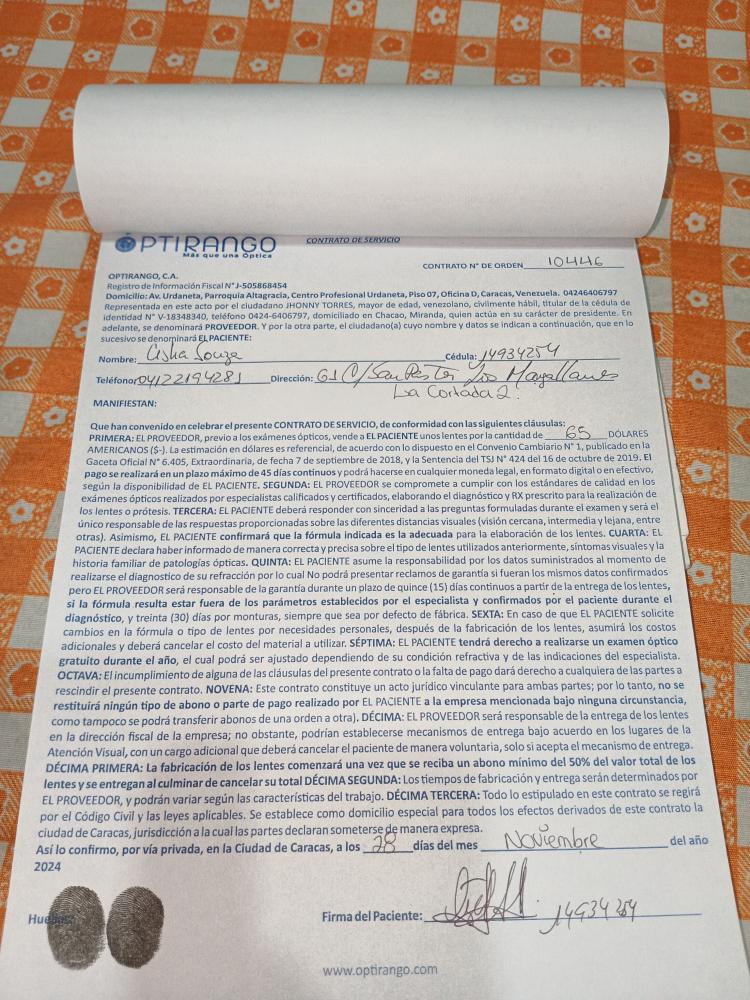 OPTIRANGO
Más que una Óptica
CONTRATO DE SERVICIO
CONTRATO N° DE ORDEN 10446
OPTIRANGO, C.A.
Registro de Información Fiscal N° J-505868454
Domicilio: Av. Urdaneta, Parroquia Altagracia, Centro Profesional Urdaneta, Piso 07, Oficina D, Caracas, Venezuela. 04246406797
Representada en este acto por el ciudadano JHONNY TORRES, mayor de edad, venezolano, civilmente hábil, titular de la cédula de
identidad N° V-18348340, teléfono 0424-6406797, domiciliado en Chacao, Miranda, quien actúa en su carácter de presidente. En
adelante, se denominará PROVEEDOR. Y por la otra parte, el ciudadano(a) cuyo nombre y datos se indican a continuación, que en lo
sucesivo se denominará EL PACIENTE:
Nombre: Souza Cédula: 14934254
Teléfono: 04122194281 Dirección: C/San Los Magallanes
La Cortada 2.
MANIFIESTAN:
Que han convenido en celebrar el presente CONTRATO DE SERVICIO, de conformidad con las siguientes cláusulas:
PRIMERA: EL PROVEEDOR, previo a los exámenes ópticos, vende a EL PACIENTE unos lentes por la cantidad de 65 DÓLARES
AMERICANOS ($-). La estimación en dólares es referencial, de acuerdo con lo dispuesto en el Convenio Cambiario N° 1, publicado en la
Gaceta Oficial N° 6.405, Extraordinaria, de fecha 7 de septiembre de 2018, y la Sentencia del TSJ N° 424 del 16 de octubre de 2019. El
pago se realizará en un plazo máximo de 45 días continuos y podrá hacerse en cualquier moneda legal, en formato digital o en efectivo,
según la disponibilidad de EL PACIENTE. SEGUNDA: EL PROVEEDOR se compromete a cumplir con los estándares de calidad en los
exámenes ópticos realizados por especialistas calificados y certificados, elaborando el diagnóstico y RX prescrito para la realización de
los lentes o prótesis. TERCERA: EL PACIENTE deberá responder con sinceridad a las preguntas formuladas durante el examen y será el
único responsable de las respuestas proporcionadas sobre las diferentes distancias visuales (visión cercana, intermedia y lejana, entre
otras). Asimismo, EL PACIENTE confirmará que la fórmula indicada es la adecuada para la elaboración de los lentes. CUARTA: EL
PACIENTE declara haber informado de manera correcta y precisa sobre el tipo de lentes utilizados anteriormente, síntomas visuales y la
historia familiar de patologías ópticas. QUINTA: EL PACIENTE asume la responsabilidad por los datos suministrados al momento de
realizarse el diagnostico de su refracción por lo cual No podrá presentar reclamos de garantía si fueran los mismos datos confirmados
pero EL PROVEEDOR será responsable de la garantía durante un plazo de quince (15) días continuos a partir de la entrega de los lentes,
si la fórmula resulta estar fuera de los parámetros establecidos por el especialista y confirmados por el paciente durante el
diagnóstico, y treinta (30) días por monturas, siempre que sea por defecto de fábrica. SEXTA: En caso de que EL PACIENTE solicite
cambios en la fórmula o tipo de lentes por necesidades personales, después de la fabricación de los lentes, asumirá los costos
adicionales y deberá cancelar el costo del material a utilizar. SÉPTIMA: EL PACIENTE tendrá derecho a realizarse un examen óptico
gratuito durante el año, el cual podrá ser ajustado dependiendo de su condición refractiva y de las indicaciones del especialista.
OCTAVA: El incumplimiento de alguna de las cláusulas del presente contrato o la falta de pago dará derecho a cualquiera de las partes a
rescindir el presente contrato. NOVENA: Este contrato constituye un acto jurídico vinculante para ambas partes; por lo tanto, no se
restituirá ningún tipo de abono o parte de pago realizado por EL PACIENTE a la empresa mencionada bajo ninguna circunstancia,
como tampoco se podrá transferir abonos de una orden a otra). DÉCIMA: EL PROVEEDOR será responsable de la entrega de los lentes
en la dirección fiscal de la empresa; no obstante, podrían establecerse mecanismos de entrega bajo acuerdo en los lugares de la
Atención Visual, con un cargo adicional que deberá cancelar el paciente de manera voluntaria, solo si acepta el mecanismo de entrega.
DÉCIMA PRIMERA: La fabricación de los lentes comenzará una vez que se reciba un abono mínimo del 50% del valor total de los
lentes y se entregan al culminar de cancelar su total DÉCIMA SEGUNDA: Los tiempos de fabricación y entrega serán determinados por
EL PROVEEDOR, y podrán variar según las características del trabajo. DÉCIMA TERCERA: Todo lo estipulado en este contrato se regirá
por el Código Civil y las leyes aplicables. Se establece como domicilio especial para todos los efectos derivados de este contrato la
ciudad de Caracas, jurisdicción a la cual las partes declaran someterse de manera expresa.
Así lo confirmo, por vía privada, en la Ciudad de Caracas, a los 28 días del mes Noviembre del año
2024
Huellas: Firma del Paciente: 14934254
www.optirango.com